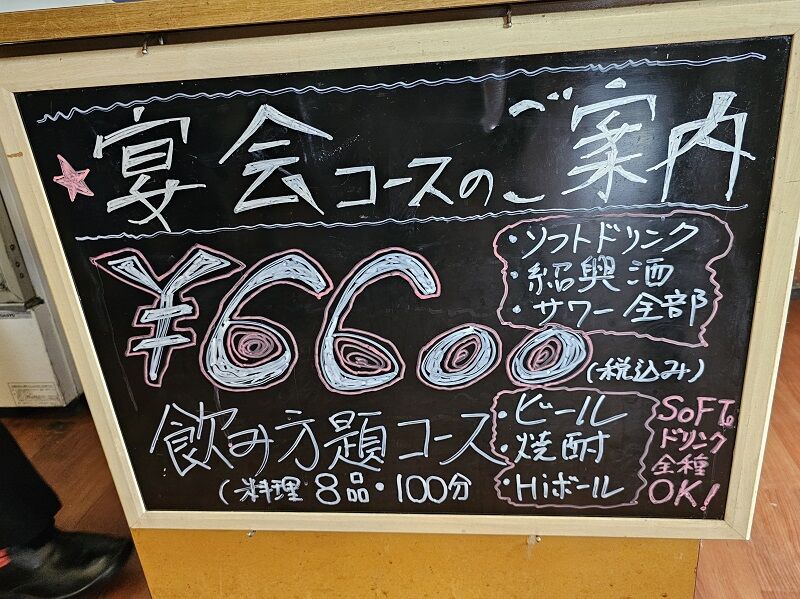 ★宴会コースのご案内
・ソフトドリンク
・紹興酒
・サワー全部
¥6600
(税込み)
飲み方題コース
(料理 8品・100分
・ビール
・焼酎
・Hiボール
SOFT
ドリンク
全種
OK!